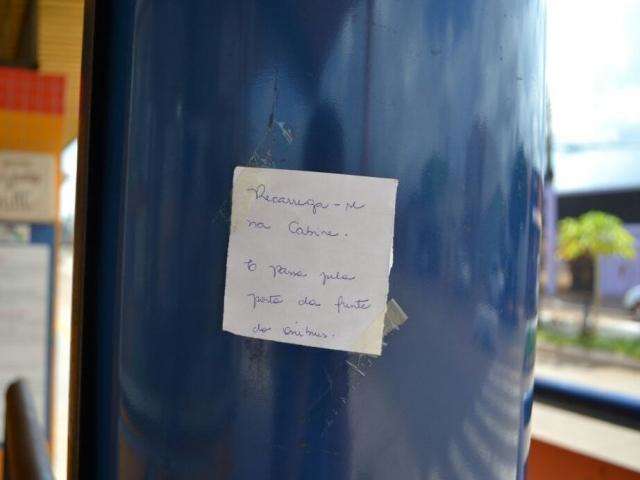 Recarrega-se
na Cabine.
E passa pela
porta da frente
do ônibus.